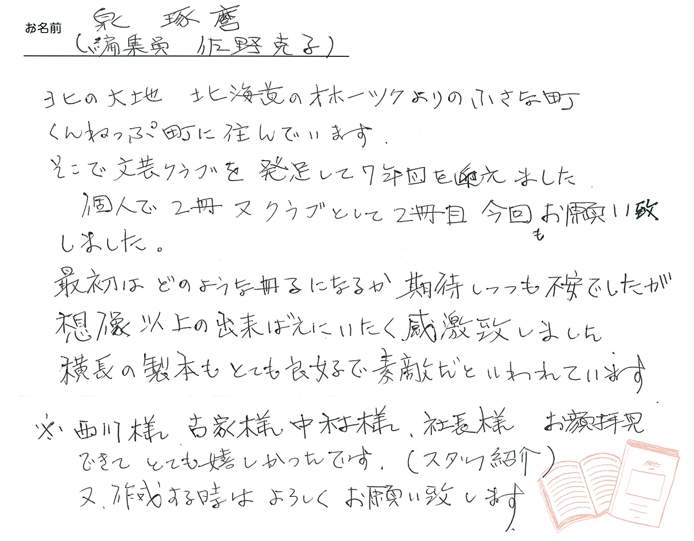 お名前 泉 琢磨
(編集員 佐野克子)
北の大地 北海道のオホーツクよりの小さな町
くんねっぷ町に住んでいます.
そこで文芸クラブを発足して7年目を迎えました
個人で2冊 又クラブとして2冊目 今回もお願い致
しました。
最初はどのような冊子になるか期待しつつも不安でしたが
想像以上の出来ばえにいたく感激致しました
横長の製本もとても良好で素敵だといわれています
※西川様 古家様 中村様、社長様 お顔拝見
できて とても嬉しかったです.(スタッフ紹介)
又、作成する時はよろしくお願い致します